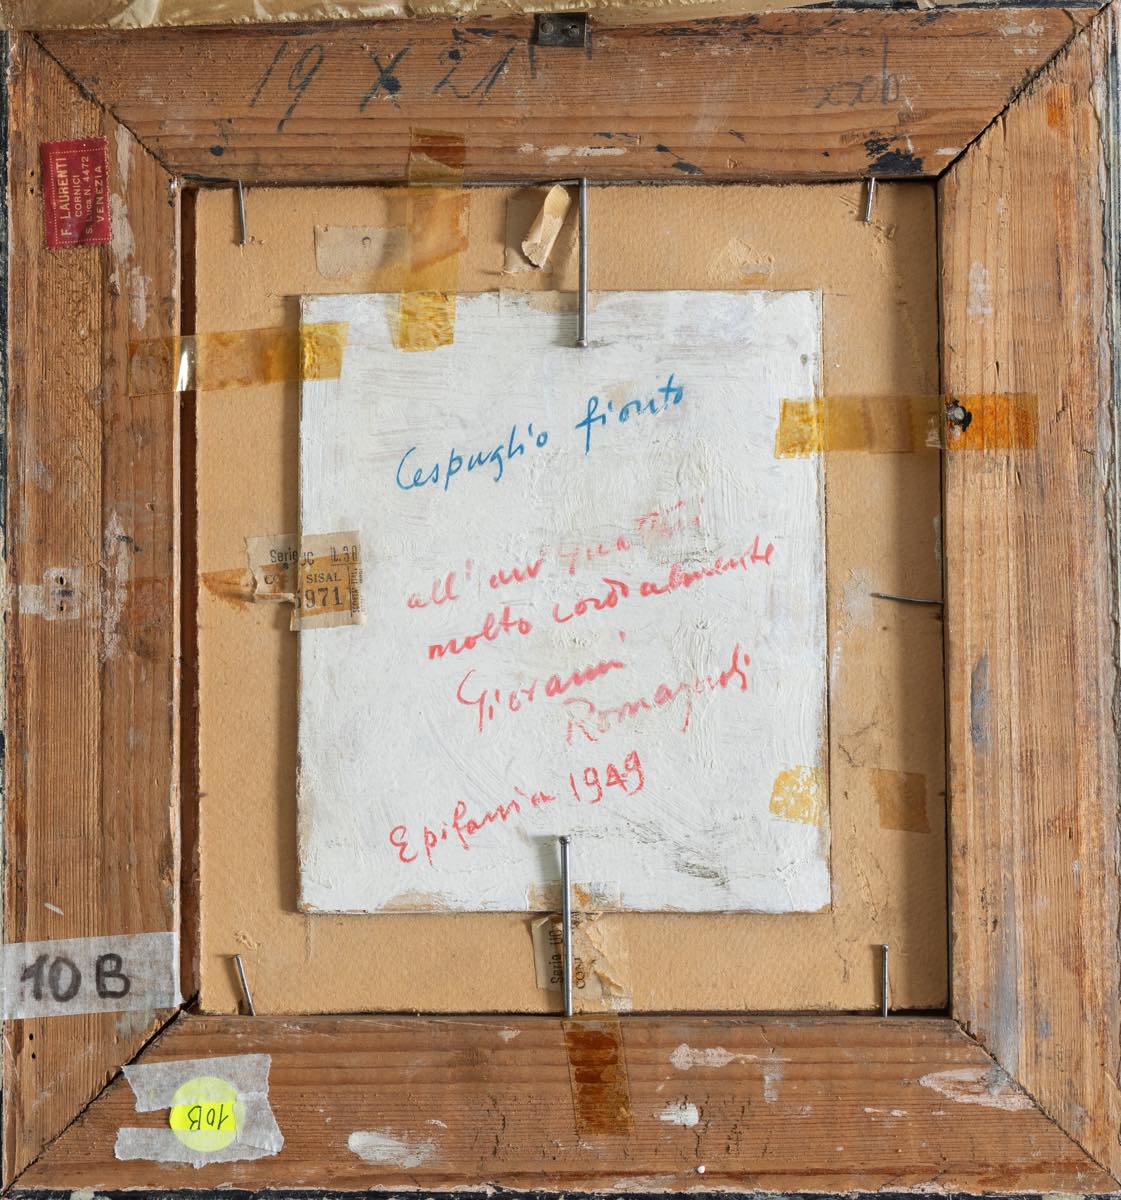 19 X 21
xxb
F. LAURENTI
CORNICI
S. Luca N. 4472
VENEZIA
Cespuglio fiorito
all'avv
molto cordialmente
Giovanni
Romagnoli
Epifania 1949
Serie UC
SISAL
1971
Serie UC
CONI
10 B
10B